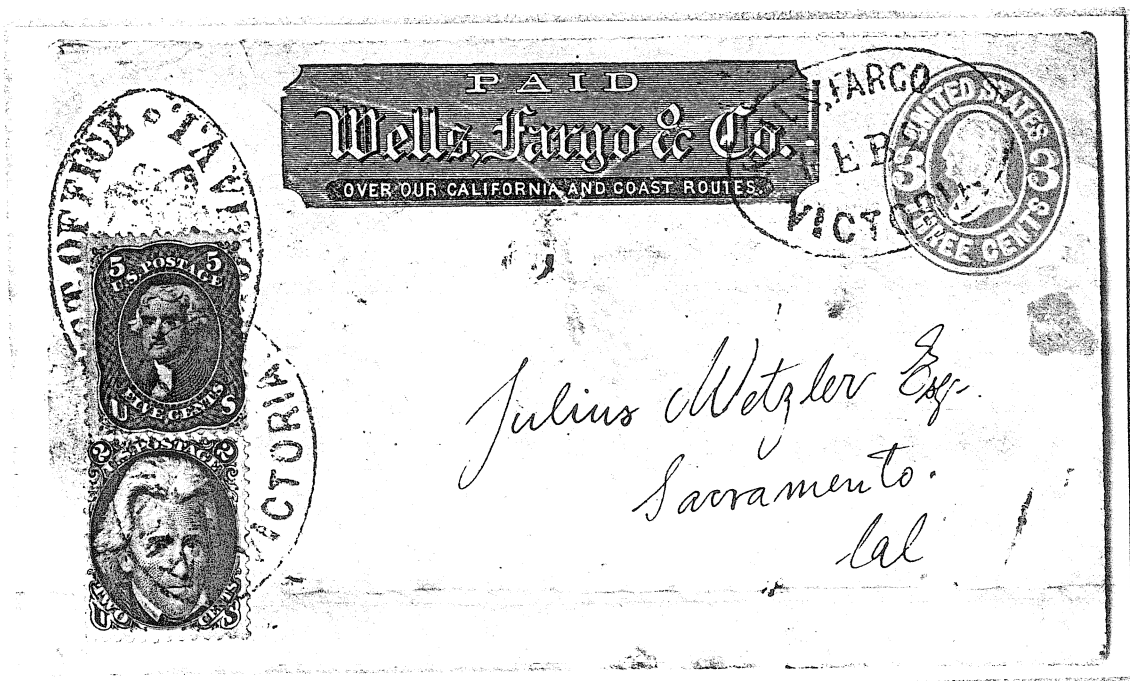 PAID
Wells, Fargo & Co.
OVER OUR CALIFORNIA AND COAST ROUTES.
FARGO
VICTO
UNITED STATES
3 3
THREE CENTS
OFFICE
PAI
5 5
U.S. POSTAGE
FIVE CENTS
U S
VICTORIA
2 2
U.S. POSTAGE
TWO CENTS
U S
Julius Wetzler Esqr.
Sacramento.
Cal